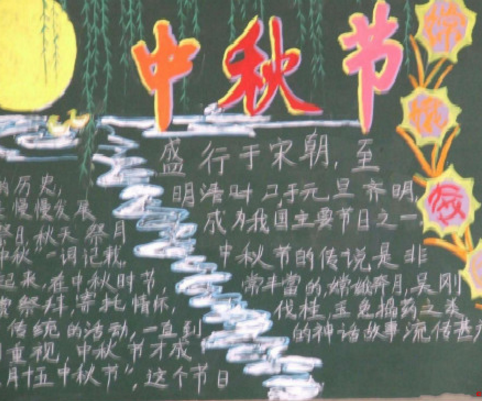 中秋节
的历史,
慢慢发展
祭日,秋天祭月
中秋一词记载,
起来,在中秋时节,
祭拜,寄托情怀,
传统的活动,一直到
重视,中秋节才成
月十五中秋节",这个节日
盛行于宋朝,至
明清时 于元旦齐明
成为我国主要节日之一
中秋节的传说是非
常丰富的,嫦娥奔月,吴刚
伐桂,玉兔捣药之类
的神话故事流传甚